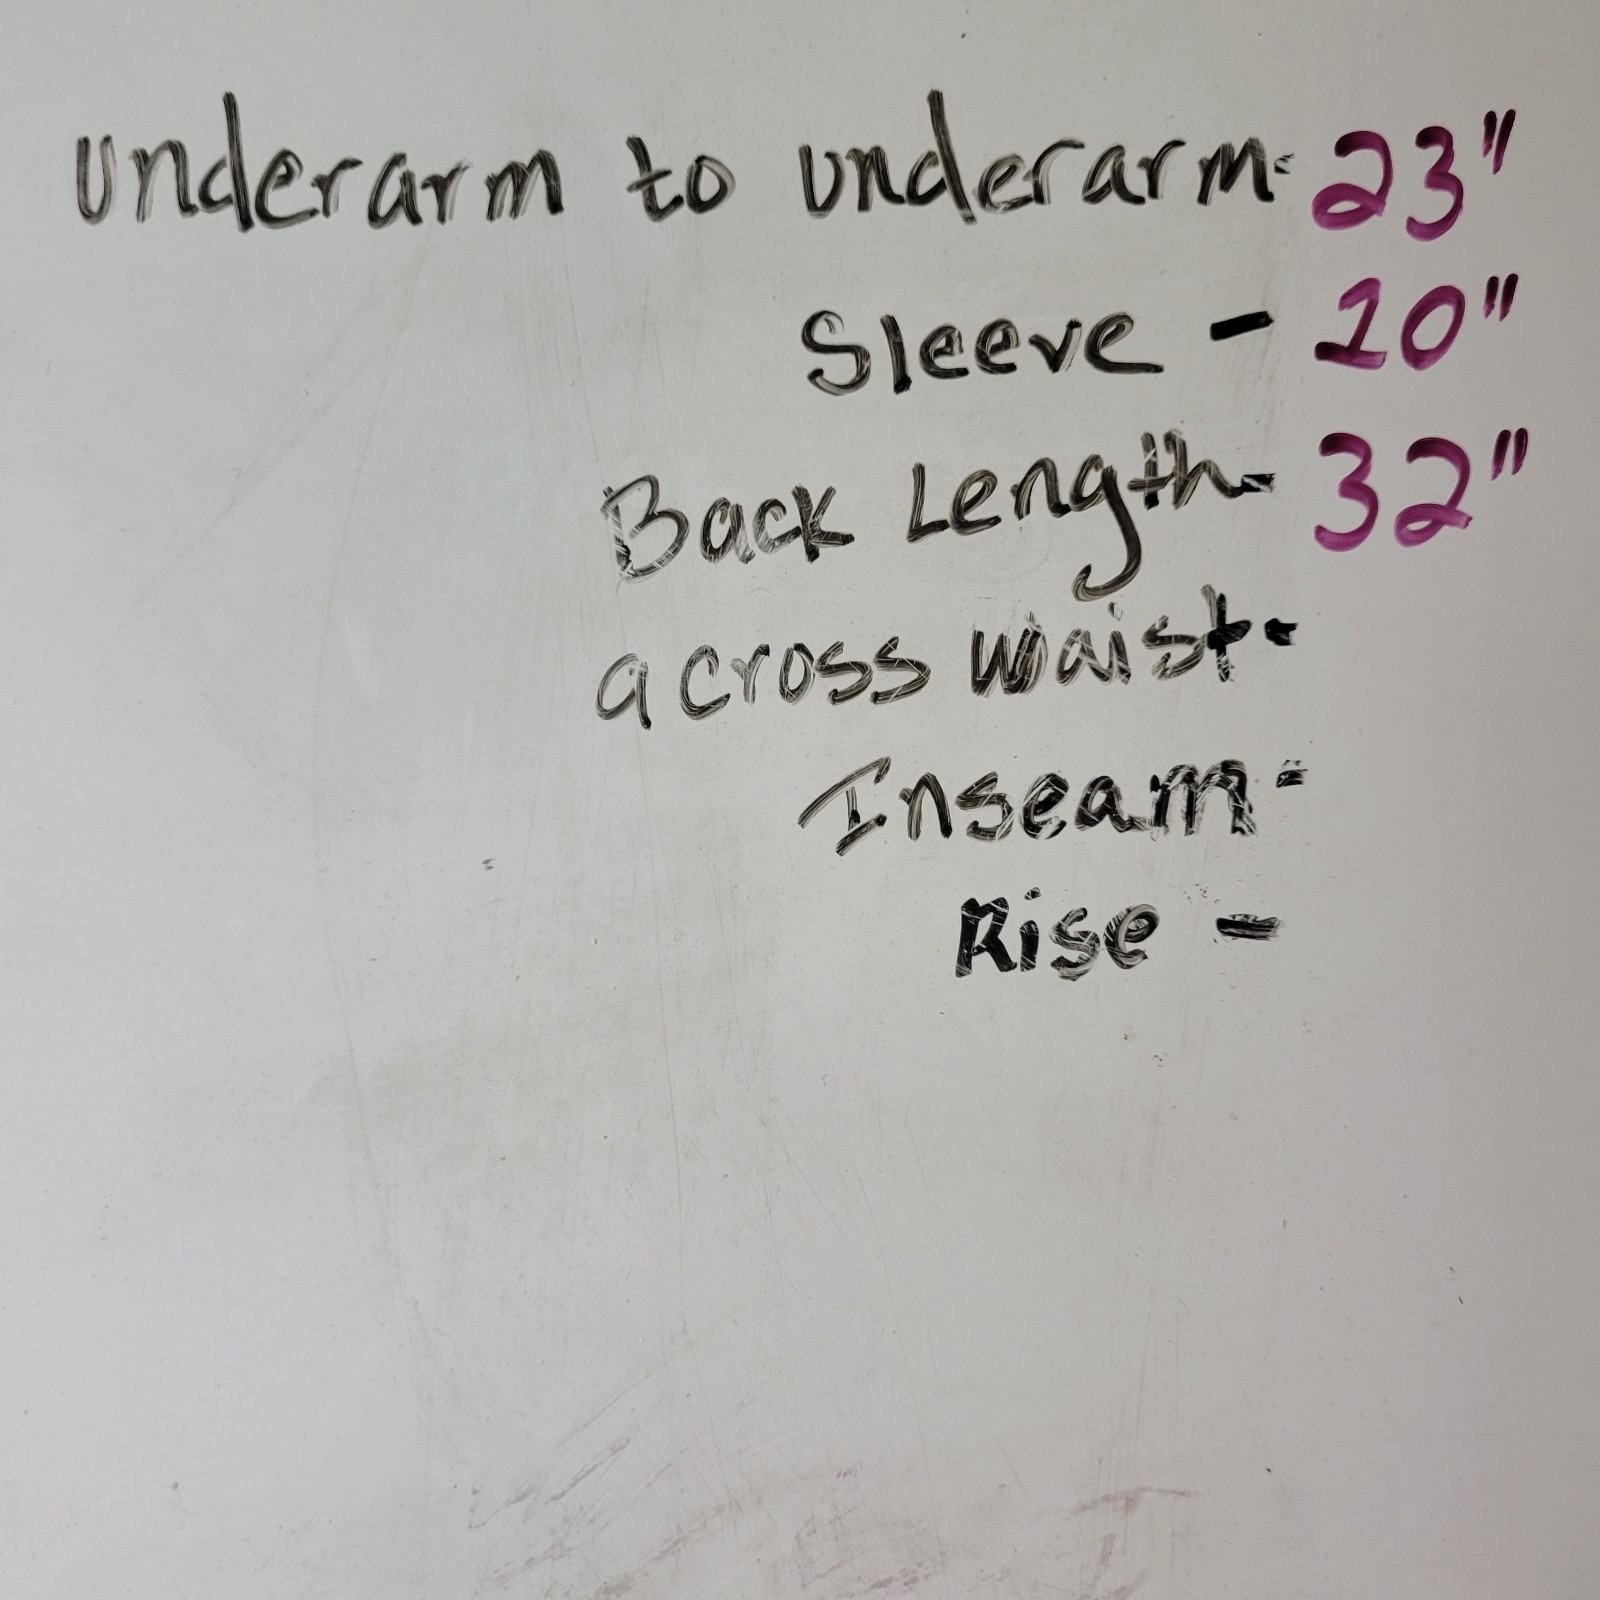 underarm to underarm- 23"
Sleeve - 10"
Back Length- 32"
across waist-
Inseam-
Rise -